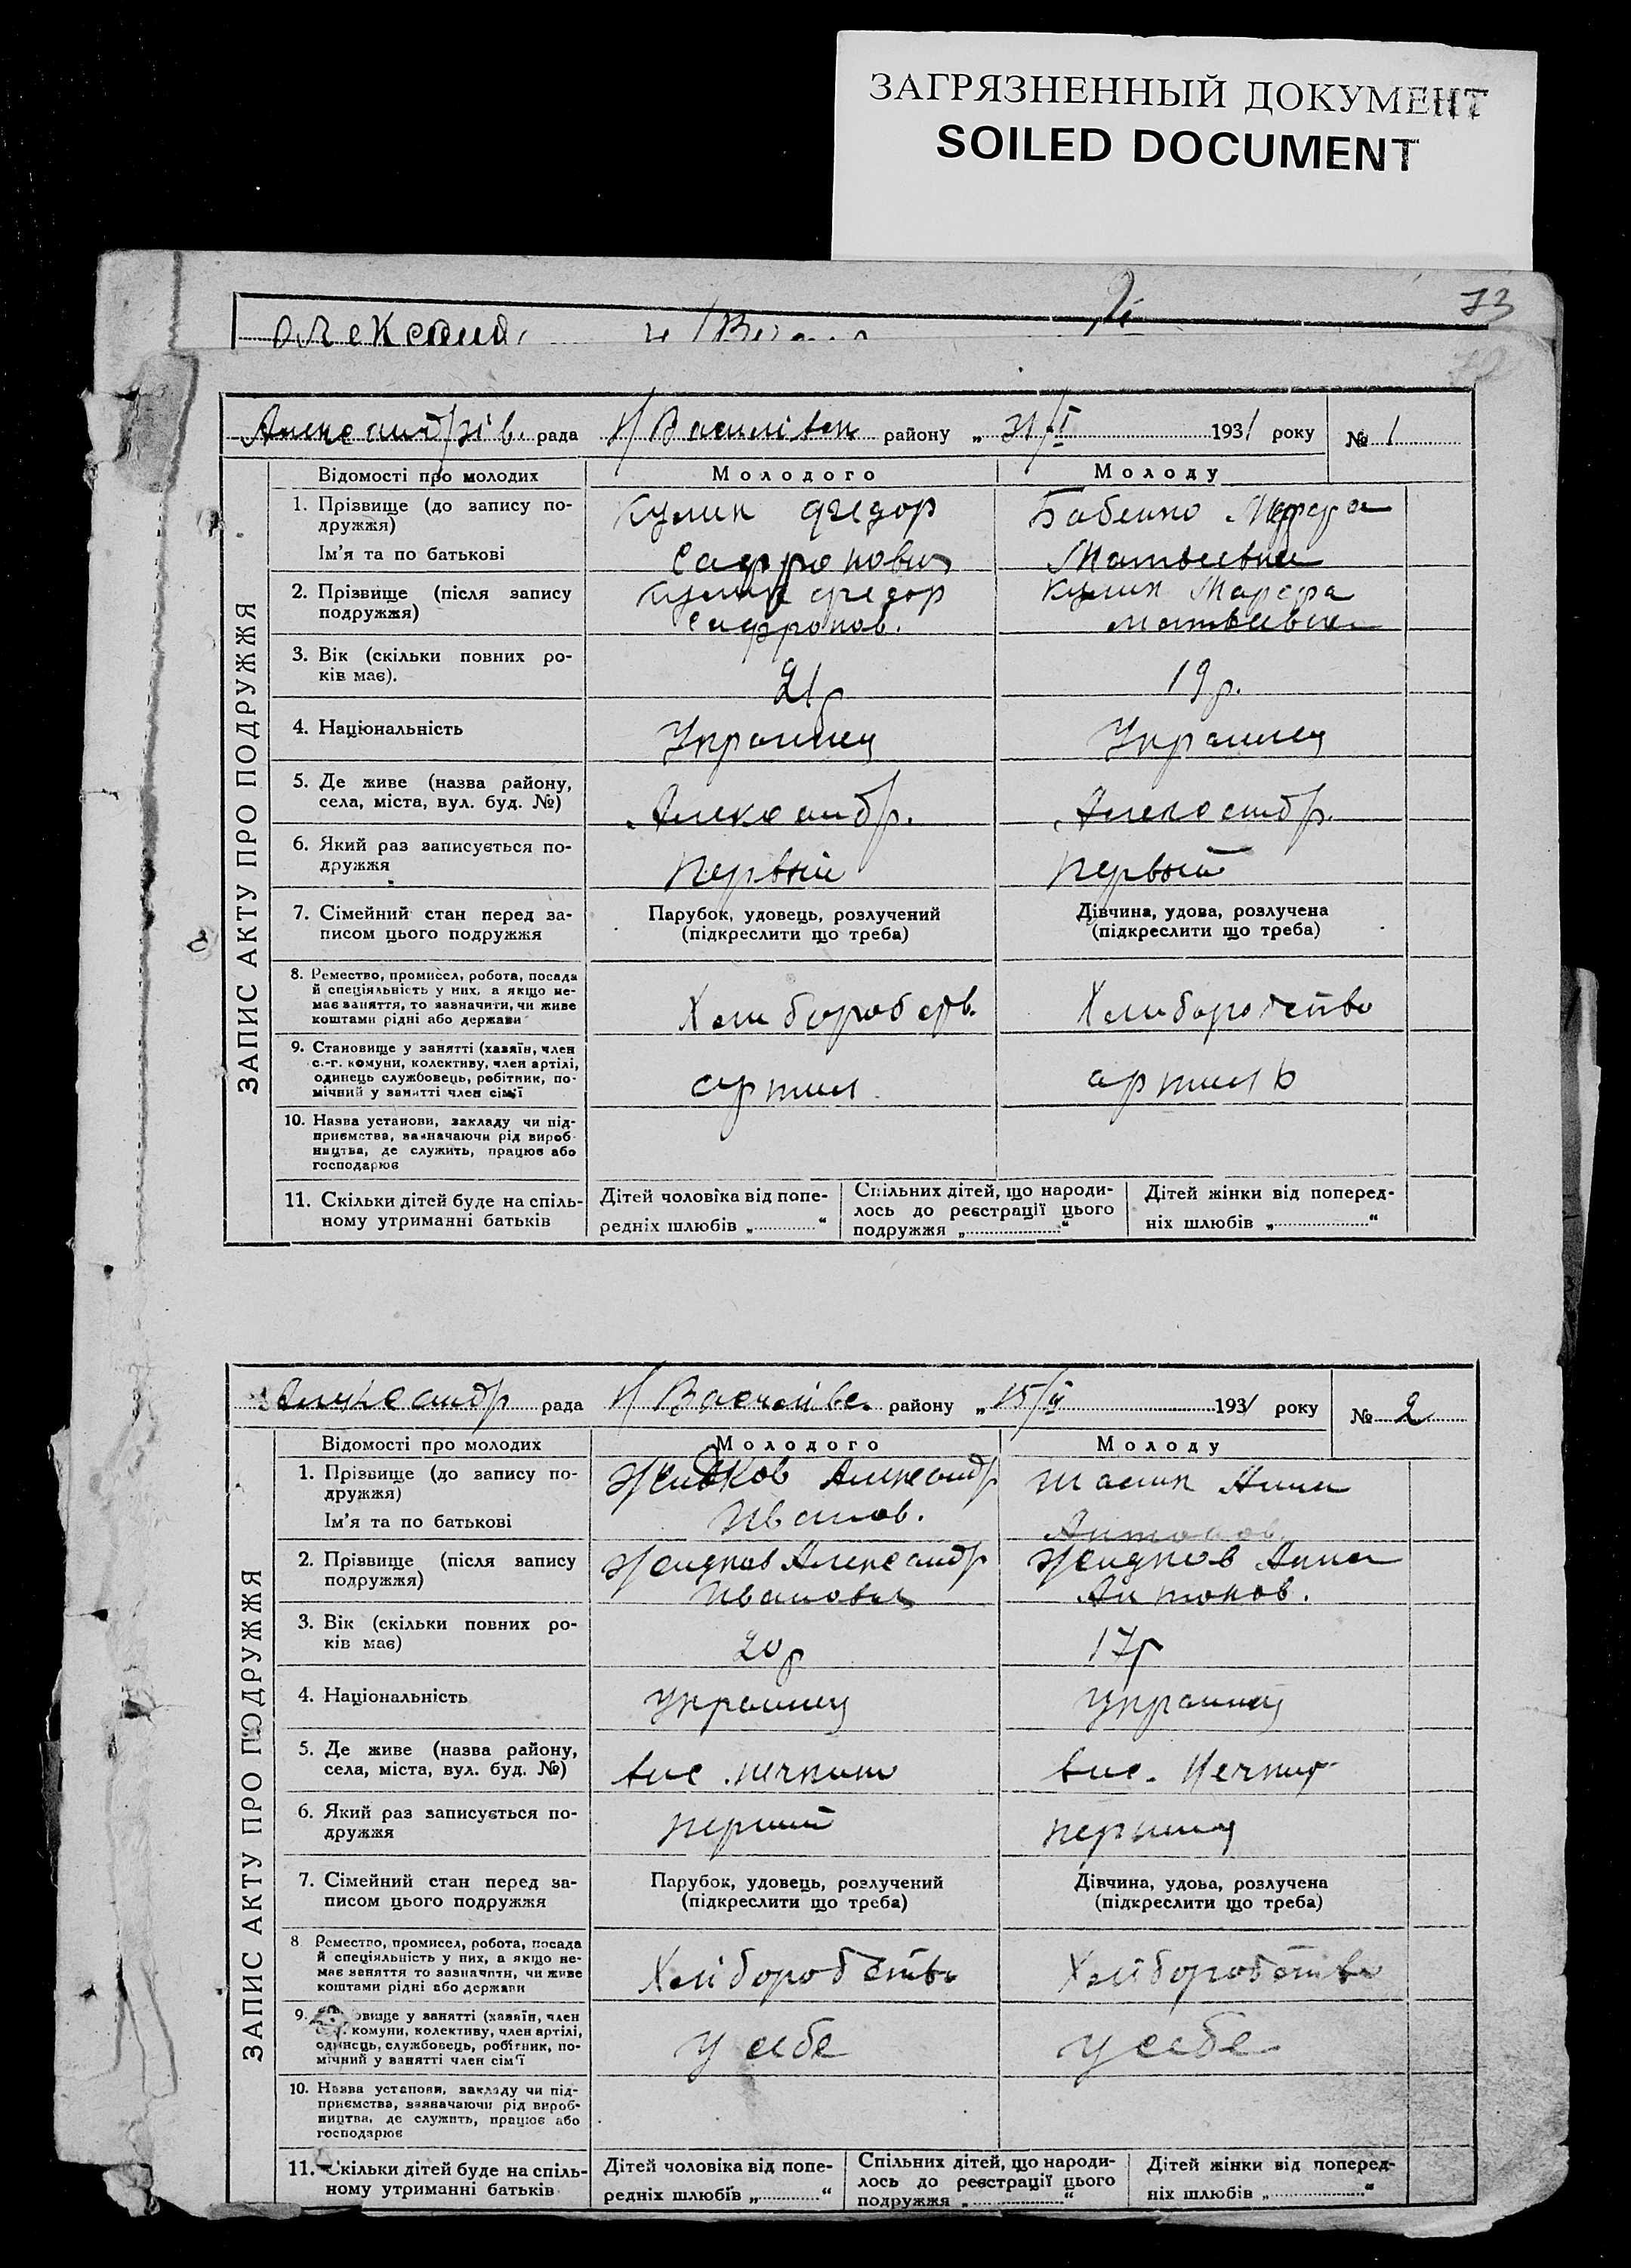 ЗАГРЯЗНЕННЫЙ ДОКУМЕНТ
SOILED DOCUMENT
73
Александрів. рада Н/Василівск району „ 31/I 1931 року № 1
ЗАПИС АКТУ ПРО ПОДРУЖЖЯ
Відомості про молодих Молодого Молоду
1. Прізвище (до запису по-
дружжя)
Ім'я та по батькові
Кулик Федор
Сафронович
Бабенко Марфа
Матвеевна
2. Прізвище (після запису
подружжя)
Кулик Федор
Сафронов.
Кулик Марфа
Матвеевна
3. Вік (скільки повних ро-
ків має).
21 р
19 р.
4. Національність
Украинец
Украинец
5. Де живе (назва району,
села, міста, вул. буд. №)
Александр.
Александр.
6. Який раз записується по-
дружжя
Первый
Первый
7. Сімейний стан перед за-
писом цього подружжя
Парубок, удовець, розлучений
(підкреслити що треба)
Дівчина, удова, розлучена
(підкреслити що треба)
8. Ремество, промисел, робота, посада
й спеціяльність у них, а якщо не-
має заняття, то зазначити, чи живе
коштами рідні або держави
Хлиборобств.
Хлиборобство
9. Становище у занятті (хазяїн, член
с.-г. комуни, колективу, член артілі,
одинець службовець, робітник, по-
мічний у занятті член сім'ї
артил
артиль
10. Назва установи, закладу чи під-
приємства, зазначаючи рід вироб-
ництва, де служить, працює або
господарює
11. Скільки дітей буде на спіль-
ному утриманні батьків
Дітей чоловіка від попе-
редніх шлюбів „ “
Спільних дітей, що народи-
лось до реєстрації цього
подружжя „ “
Дітей жінки від поперед-
ніх шлюбів „ “
Александр рада Н/Василівс. району „ 15/II 1931 року № 2
ЗАПИС АКТУ ПРО ПОДРУЖЖЯ
Відомості про молодих Молодого Молоду
1. Прізвище (до запису по-
дружжя)
Ім'я та по батькові
Жидков Александр
Иванов.
Анна
Антонов.
2. Прізвище (після запису
подружжя)
Жидков Александр
Иванович
Жидков Анна
Антонов.
3. Вік (скільки повних ро-
ків має)
20 р
17 р
4. Національність
Украинец
Украинец
5. Де живе (назва району,
села, міста, вул. буд. №)
вис.
вис.
6. Який раз записується по-
дружжя
перший
7. Сімейний стан перед за-
писом цього подружжя
Парубок, удовець, розлучений
(підкреслити що треба)
Дівчина, удова, розлучена
(підкреслити що треба)
8 Ремество, промисел, робота, посада
й спеціяльність у них, а якщо не-
має заняття то зазначити, чи живе
коштами рідні або держави
Хліборобство
Хліборобство
9. комуни, колективу, член артілі,
одинець, службовець, робітник, по-
мічний у занятті член сім'ї
у себе
у себе
10. Назва установи, закладу чи під-
приємства, зазначаючи рід вироб-
ництва, де служить, працює або
господарює
11. Скільки дітей буде на спіль-
ному утриманні батьків
Дітей чоловіка від попе-
редніх шлюбів „ “
Спільних дітей, що народи-
лось до реєстрації цього
подружжя „ “
Дітей жінки від поперед-
ніх шлюбів „ “